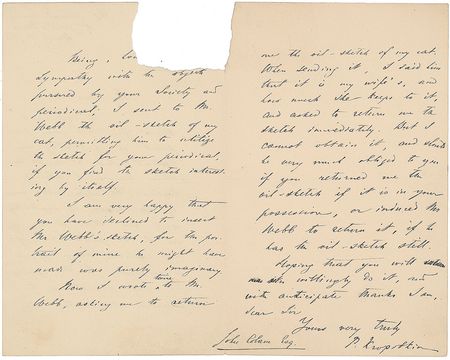 Being,
sympathy with the objects
pursued by your Society and
periodical, I sent to Mr.
Webb the oil-sketch of my
cat, permitting him to utilize
the sketch for your periodical,
if you find the sketch interest-
ing by itself.
I am very happy that
you have declined to insert
Mr Webb's sketch, for the por-
trait of mine he might have
made was purely imaginary.
Now I wrote to Mr.
Webb, asking me to return
me the oil-sketch of my cat.
When sending it, I said him
that it is my wife's, and
how much she keeps to it,
and asked to return me the
sketch immediately. But I
cannot obtain it, and should
be very much obliged to you
if you returned me the
oil-sketch if it is in your
possession, or induced Mr
Webb to return it, if he
has the oil-sketch still.
Hoping that you will
willingly do it, and
with anticipate thanks I am,
dear Sir
Yours very truly
P. Kropotkin
John Colam Esq.